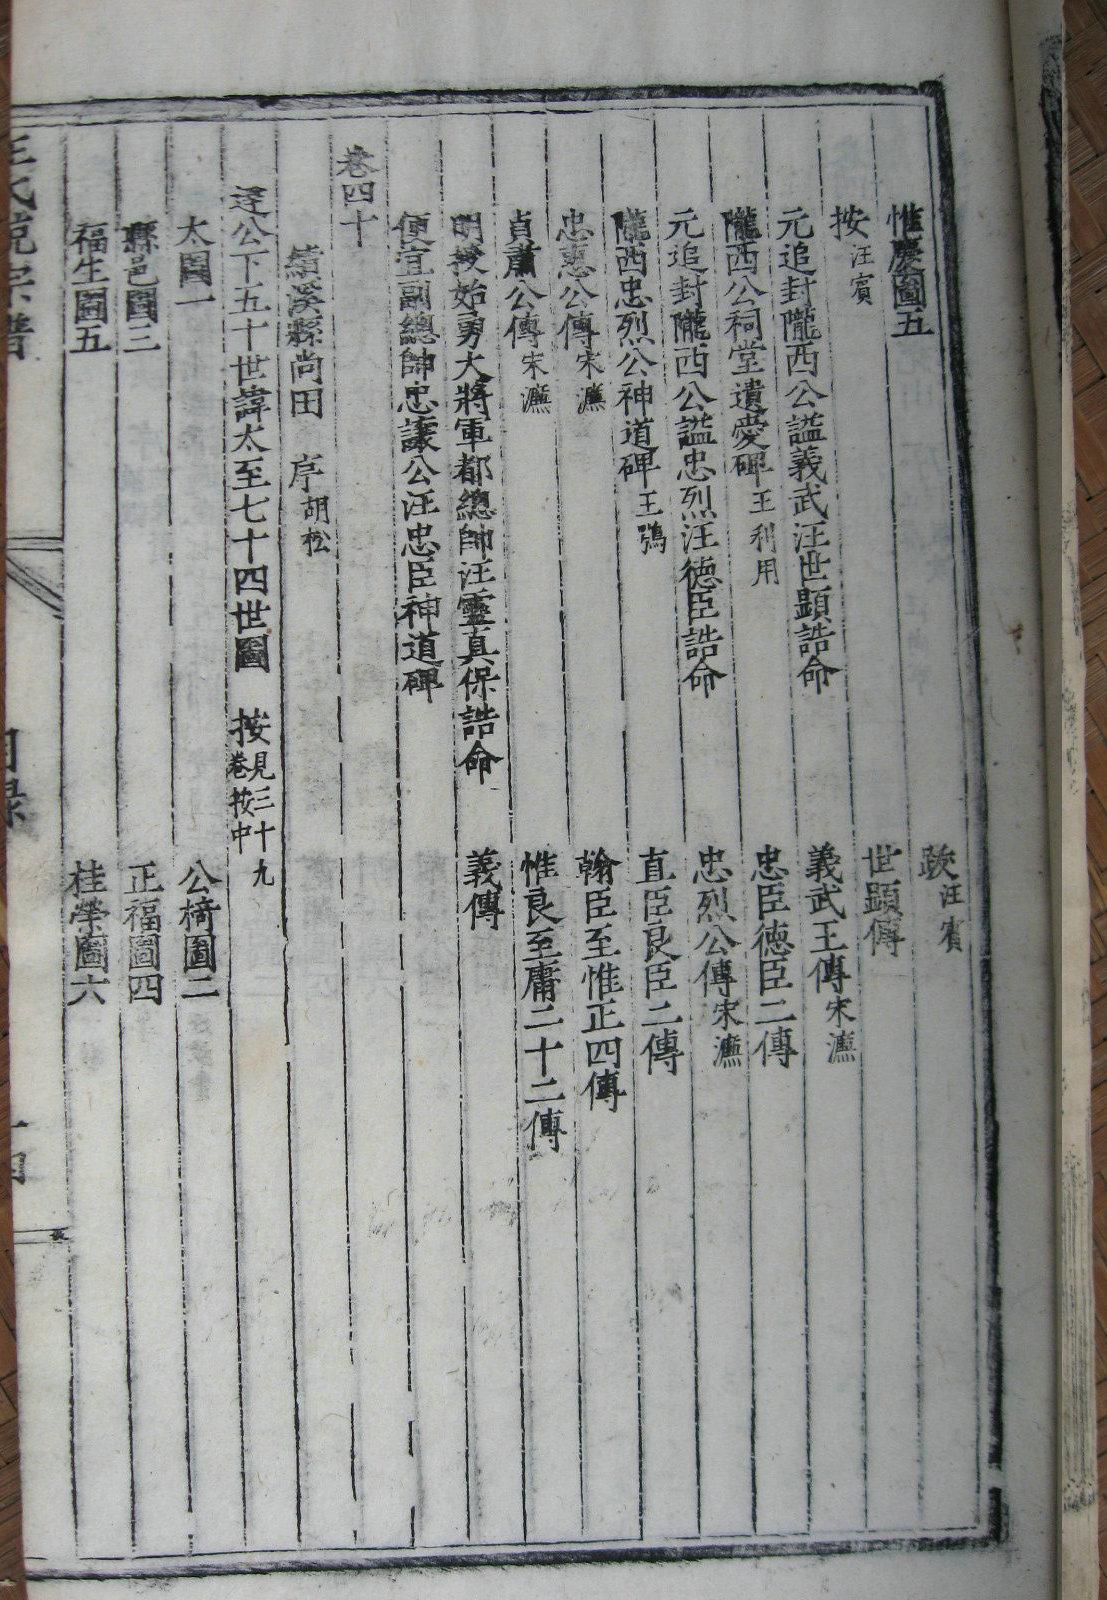 惟慶圖五　跋汪賓
按汪賓　世顯傳
元追封隴西公謚義武汪世顯誥命　義武王傳宋濂
隴西公祠堂遺愛碑王利用　忠臣德臣二傳
元追封隴西公謚忠烈汪德臣誥命　忠烈公傳宋濂
隴西忠烈公神道碑王鶚　直臣良臣二傳
忠惠公傳宋濂　翰臣至惟正四傳
貞肅公傳宋濂　惟良至庸二十二傳
明授始勇大將軍都總帥汪靈真保誥命　義傳
便宜副總帥忠讓公汪忠臣神道碑
卷四十
績溪縣尚田　序胡松
逵公下五十世諱太至七十四世圖　按見三十九卷按中
太圖一　公椅圖二
縣邑圖三　正福圖四
福生圖五　桂榮圖六
汪氏統宗譜　目錄　十四